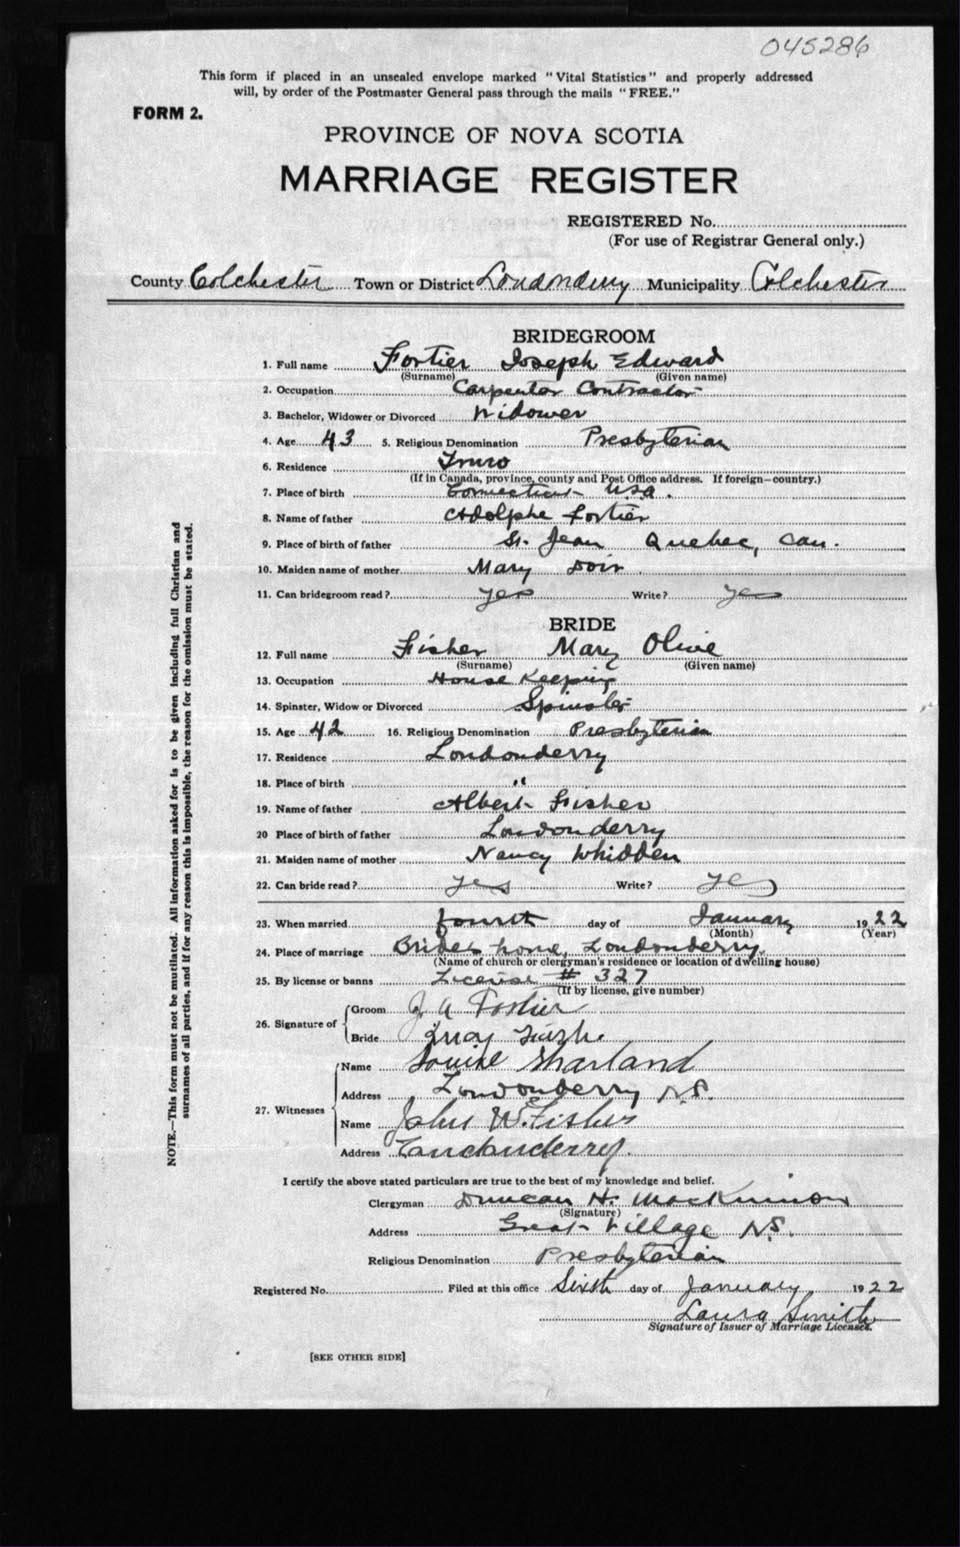 045286
This form if placed in an unsealed envelope marked "Vital Statistics" and properly addressed
will, by order of the Postmaster General pass through the mails "FREE."
FORM 2.
PROVINCE OF NOVA SCOTIA
MARRIAGE REGISTER
REGISTERED No.
(For use of Registrar General only.)
County Colchester Town or District Londonderry Municipality Colchester
BRIDEGROOM
1. Full name Fortier Joseph Edward
(Surname) (Given name)
2. Occupation Carpenter Contractor
3. Bachelor, Widower or Divorced Widower
4. Age 43 5. Religious Denomination Presbyterian
6. Residence Truro
(If in Canada, province, county and Post Office address. If foreign—country.)
7. Place of birth Connecticut U.S.A.
8. Name of father Adolphe Fortier
9. Place of birth of father St. Jean Quebec, Can.
10. Maiden name of mother Mary Doir
11. Can bridegroom read? yes Write? yes
BRIDE
12. Full name Fisher Mary Olive
(Surname) (Given name)
13. Occupation House Keeping
14. Spinster, Widow or Divorced Spinster
15. Age 42 16. Religious Denomination Presbyterian
17. Residence Londonderry
18. Place of birth "
19. Name of father Albert Fisher
20 Place of birth of father Londonderry
21. Maiden name of mother Nancy Whidden
22. Can bride read? yes Write? yes
23. When married fourth day of January 1922
(Month) (Year)
24. Place of marriage Brides home, Londonderry.
(Name of church or clergyman's residence or location of dwelling house)
25. By license or banns License # 327
(If by license, give number)
26. Signature of
Groom J Fortier
Bride
27. Witnesses
Name Louise Sharland
Address Londonderry N.S.
Name John W. Fisher
Address Londonderry.
I certify the above stated particulars are true to the best of my knowledge and belief.
Clergyman Duncan H. MacKinnon
(Signature)
Address Great Village N.S.
Religious Denomination Presbyterian
Registered No. Filed at this office Sixth day of January 1922
Laura Smith
Signature of Issuer of Marriage Licenses.
[SEE OTHER SIDE]
NOTE.—This form must not be mutilated. All information asked for is to be given including full Christian and
surnames of all parties, and if for any reason this is impossible, the reason for the omission must be stated.